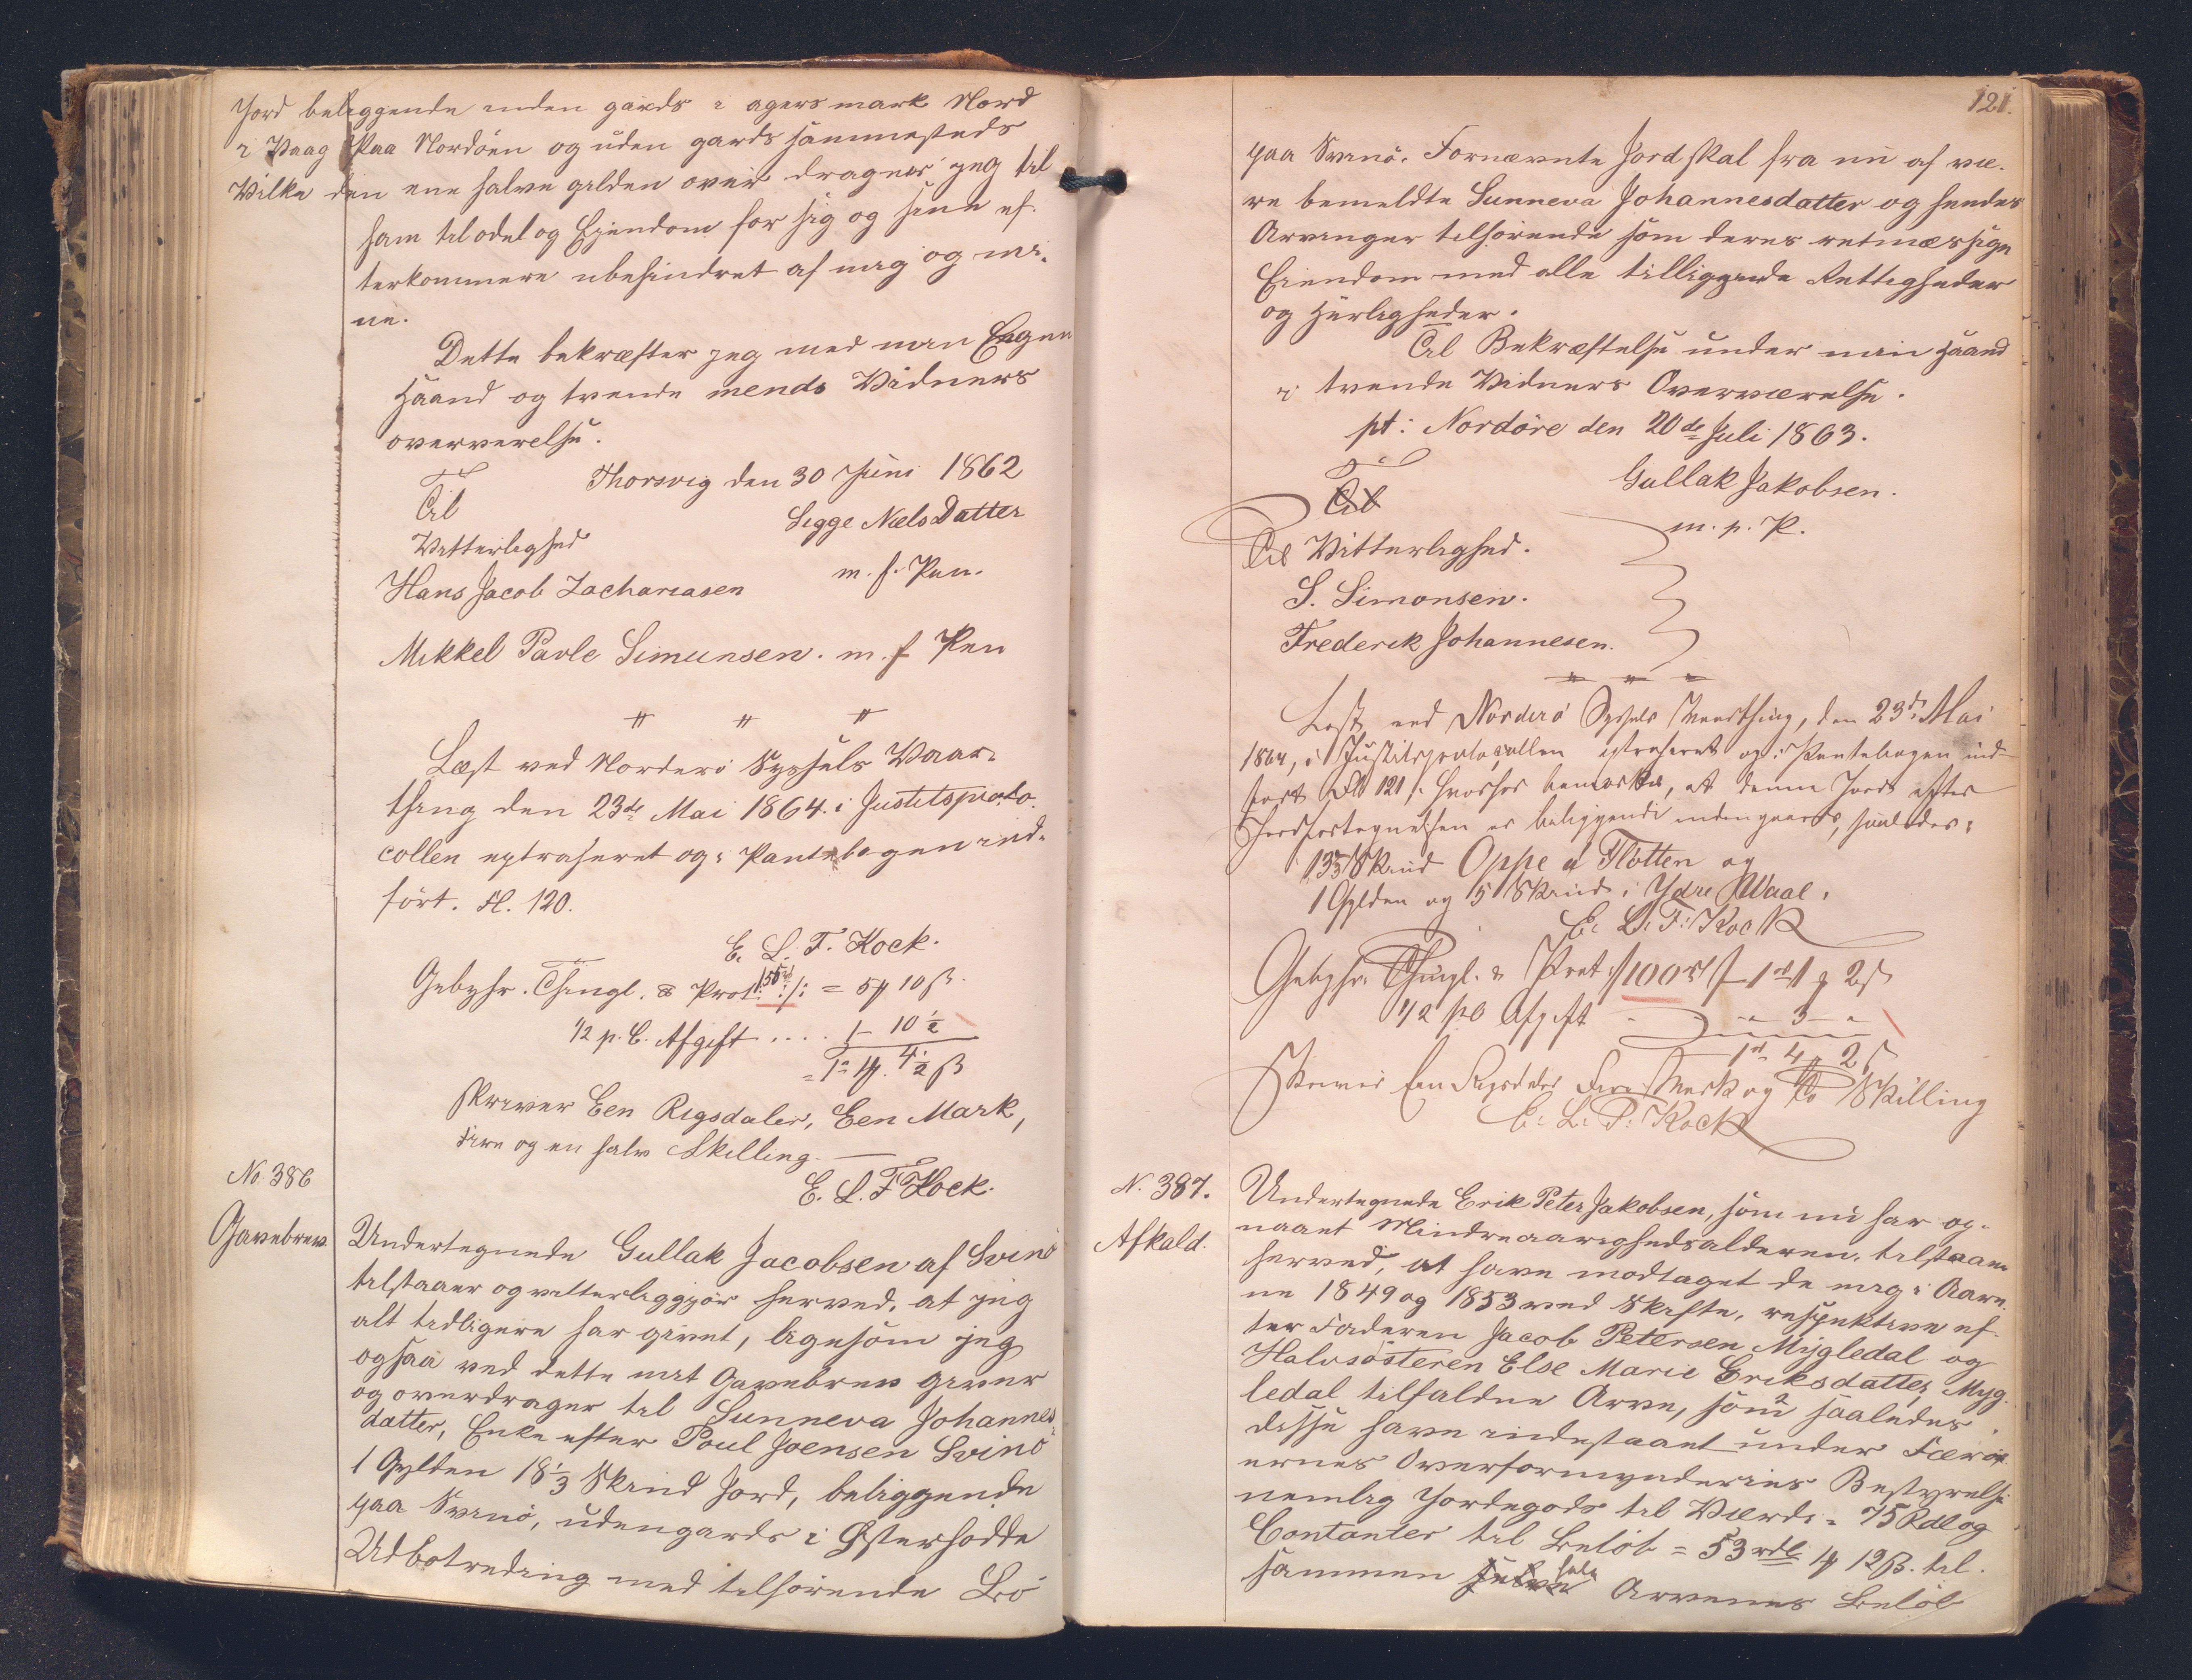 Jord beliggende inden gards i agers mark Nord
i Vaag Paa Nordöen og uden gards sammesteds
Vilke den ene halve gilden over drager jeg til
ham til odel og Ejendom for sig og sine ef-
terkommere ubehindret af mig og mi-
ne.
Dette bekræfter jeg med min Eegne
Haand og tvende mends Vidners
oververelse.
Thorsvig den 30 Juni 1862
Til
Sigge NielsDatter
Vitterlighed
m. f. Pen.
Hans Jacob Zachariasen
Mikkel Pavle Simunsen. m. f Pen
Læst ved Norderö Syssels Vaar-
thing den 23de Mai 1864. i Justitsproto-
collen extraheret og i Pantebogen ind-
fört. Fl. 120.
E. L. F. Kock.
Gebyhr. Thingl. & Prot. 150rd :/: = 5 ๗ 10 ß.
1/2 p. C. Afgift .... 1 - 10 1/2
= 1 - 1 ๗. 4 1/2 ß
skriver Een Rigsdaler, Een Mark,
fire og en halv Skilling.
E. L. F Kock.
No. 386
Gavebrev
Undertegnede Gullak Jacobsen af Svinö
tilstaaer og vitterliggjör herved, at jeg
alt tidligere har givet, ligesom jeg
ogsaa ved dette mit Gavebrev giver
og overdrager til Sunneva Johannes-
datter, Enke efter Poul Joensen Svinö
1 Gylden 18 1/3 Skind Jord, beliggende
paa Svinö, udengards i Østerhodde
Udbotreding med tilhörende Lö
121.
paa Svinö. Fornævnte Jord skal fra nu af væ-
re bemeldte Sunneva Johannesdatter og hendes
Arvinger tilhörende som deres retmæssige
Eiendom med alle tilliggende Rettigheder
og Herligheder.
Til Bekræftelse under min Haand
i tvende Vidners Overværelse.
pt: Nordöre den 20de Juli 1863.
Gullak Jakobsen.
Til
m. p. P.
Til Vitterlighed.
S. Simonsen.
Frederik Johannesen.
Læst ved Norderö Syssels Vaarthing, den 23de Mai
1864, i Justitsprotocollen extraheret og i Pantebogen ind-
fört Fl 121 /: hvorhos bemærkes, at denne Jord efter
Jordfortegnelsen er beliggende indengaards, saaledes:
13 Skind Oppe á Flötten og
1 Gylden og 5 Skind i Ydre Waal.
E. L. F. Kock
Gebyhr. Thingl. & Prot. /100rd/ 1rd 1 ๗ 2 ß
1/2 pC Afgift - " - 3 - "
1rd 4 ๗ 2 ß
Skriver Een Rigsdaler Fire Mark og To Skilling
E. L. F. Kock
N. 387.
Afkald.
Undertegnede Erik Peter Jakobsen, som nu har op-
naaet Mindreaarighedsalderen, tilstaaer
herved, at have modtaget de mig i Aare-
ne 1849 og 1853 ved Skifte, respektive ef-
ter Faderen Jacob Petersen Mygledal og
Halvsösteren Else Marie Eriksdatter Myg-
ledal tilfaldne Arve, som saaledes
disse have indestaaet under Færö-
ernes Overformynderies Bestyrelse
nemlig Jordegods til Værdi = 75 Rdl og
Contanter til Belöb = 53 rdl 1 ๗ 12 ß. til-
sammen hele Arvenes Belöb